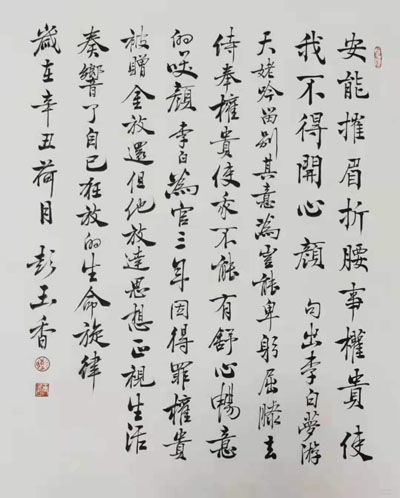 安能摧眉折腰事權貴使
我不得開心顏 句出李白夢游
天姥吟留别其意為豈能卑躬屈膝去
侍奉權貴使我不能有舒心暢意
的咲顏 李白為官三年因得罪權貴
被贈金放還但他放達思想正視生活
奏響了自己狂放的生命旋律
歲在辛丑荷月 彭玉香